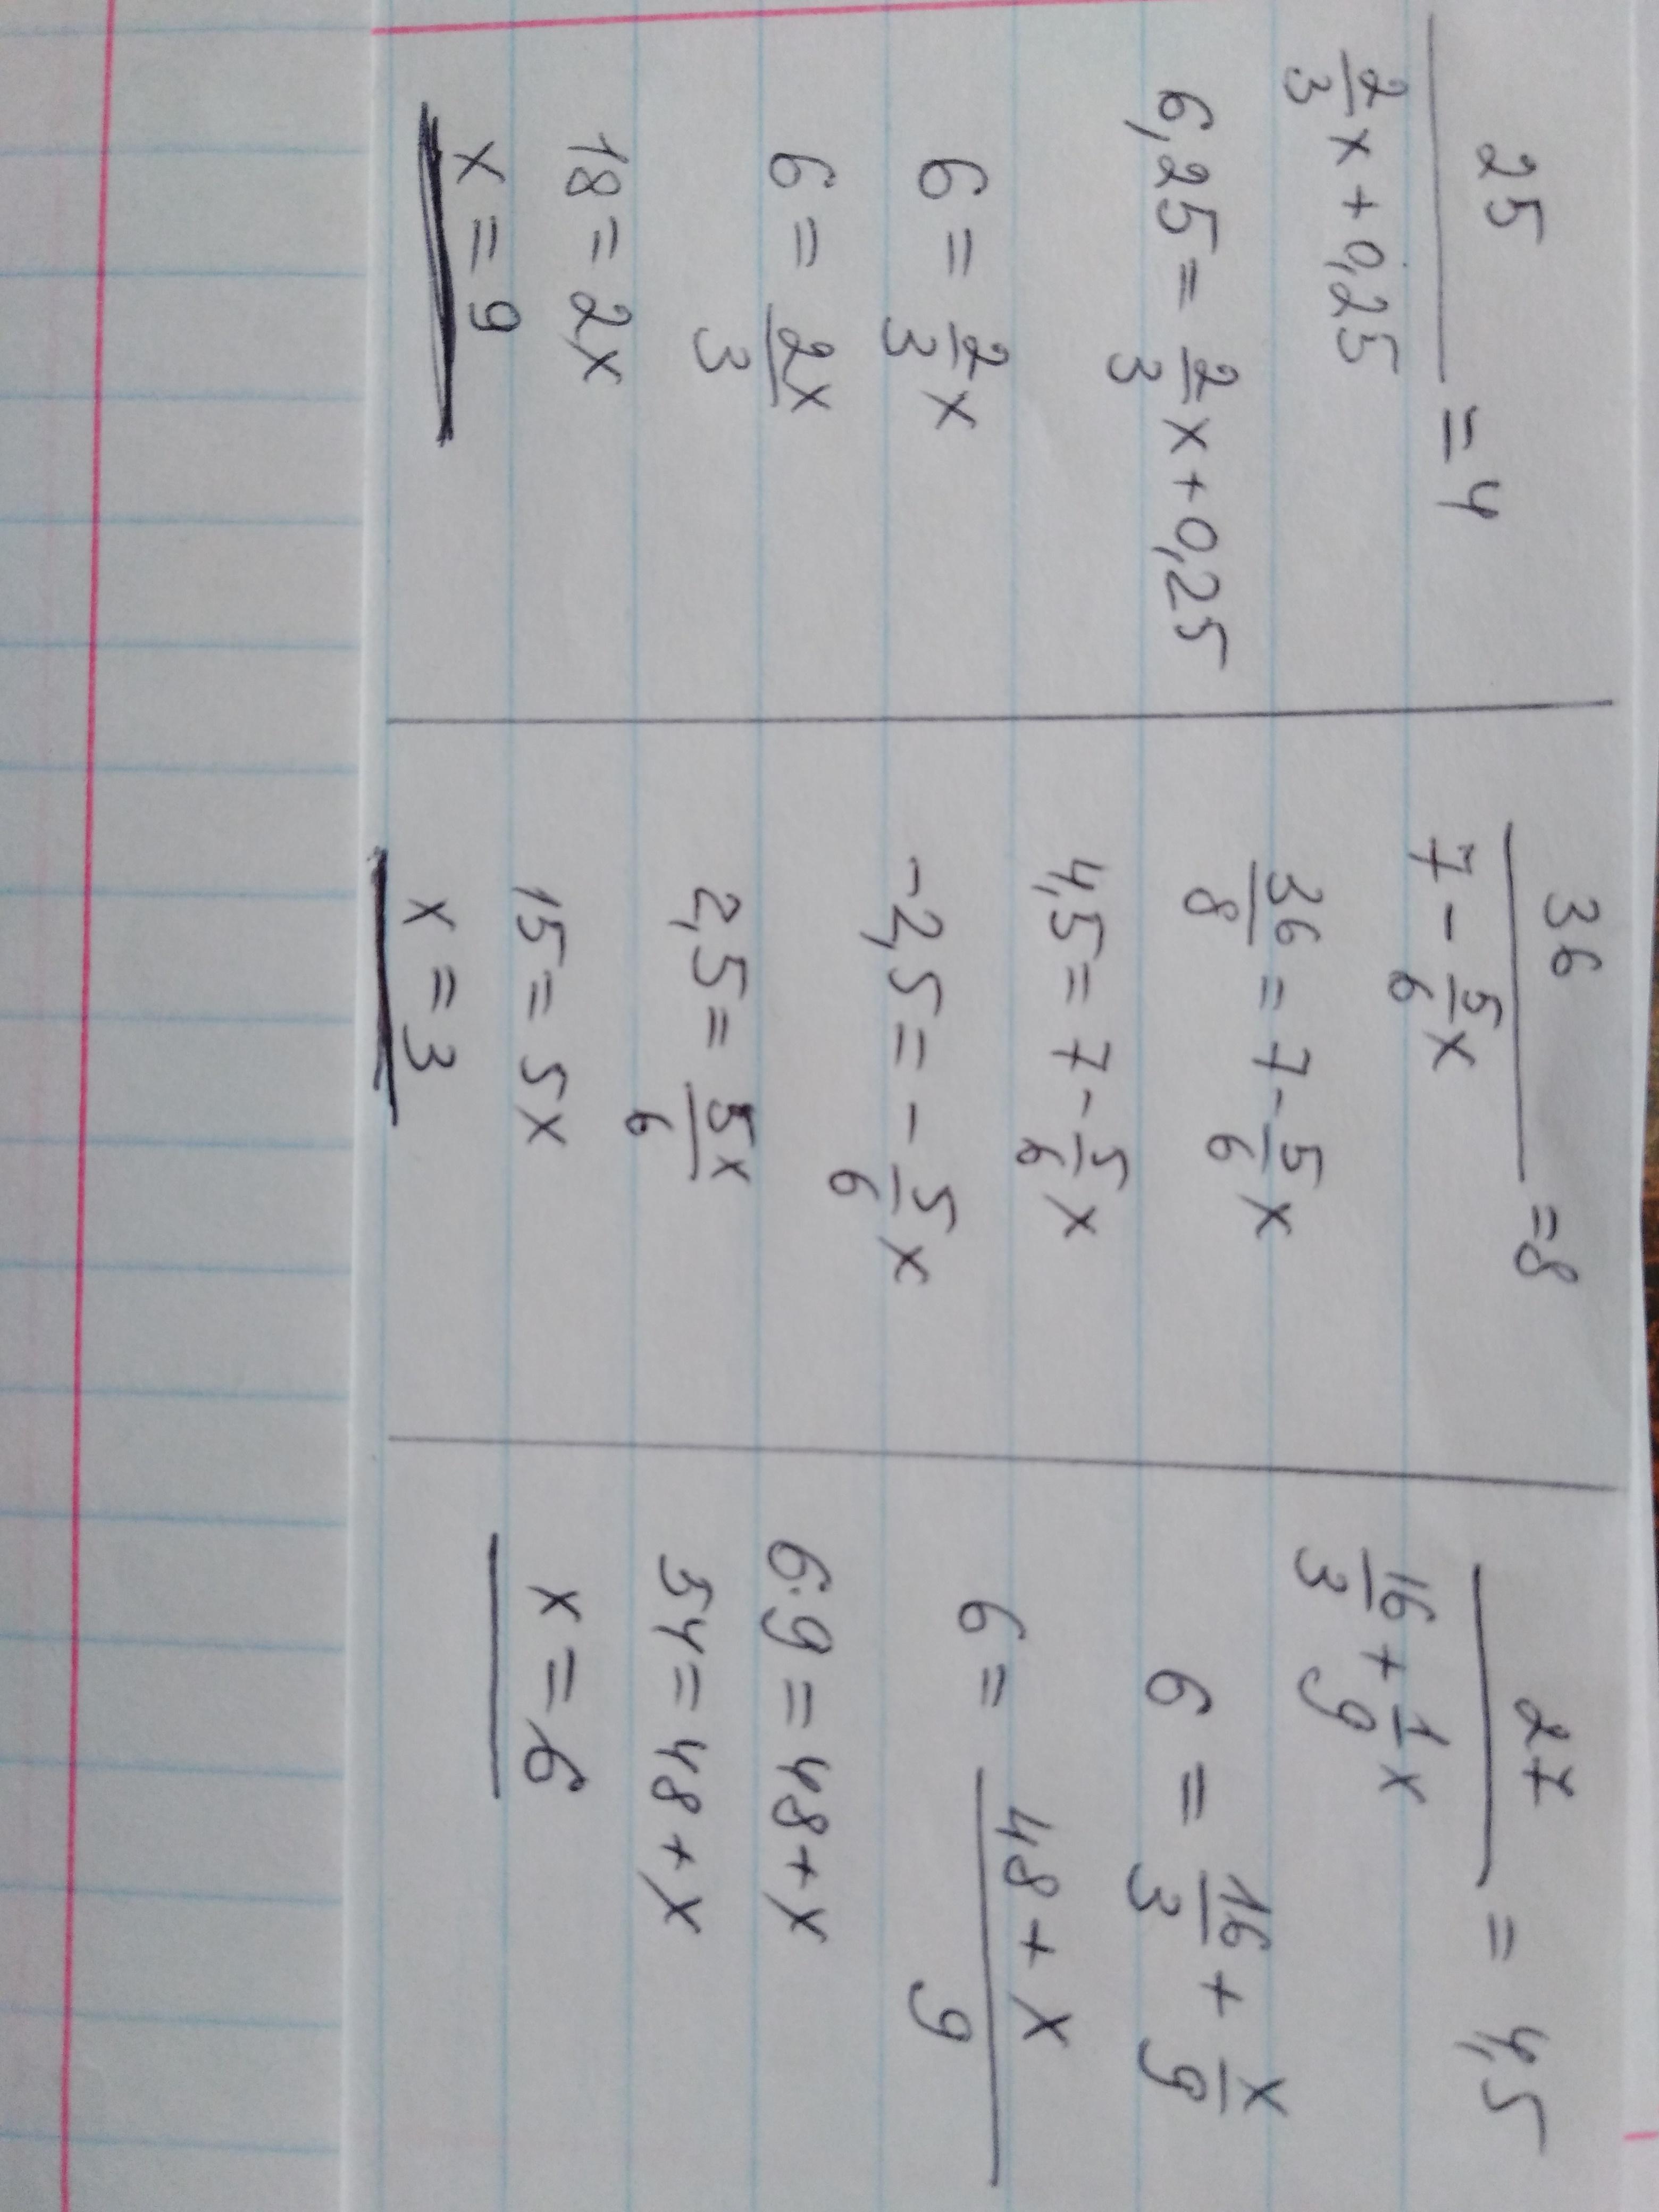 25
———— = 4
2/3 x + 0,25
6,25 = 2/3 x + 0,25
6 = 2/3 x
6 = 2x/3
18 = 2x
x = 9
36
———— = 8
7 - 5/6 x
36/8 = 7 - 5/6 x
4,5 = 7 - 5/6 x
-2,5 = - 5/6 x
2,5 = 5x/6
15 = 5x
x = 3
27
———— = 4,5
16/3 + 1/9 x
6 = 16/3 + x/9
6 = 48 + x / 9
6·9 = 48 + x
54 = 48 + x
x = 6